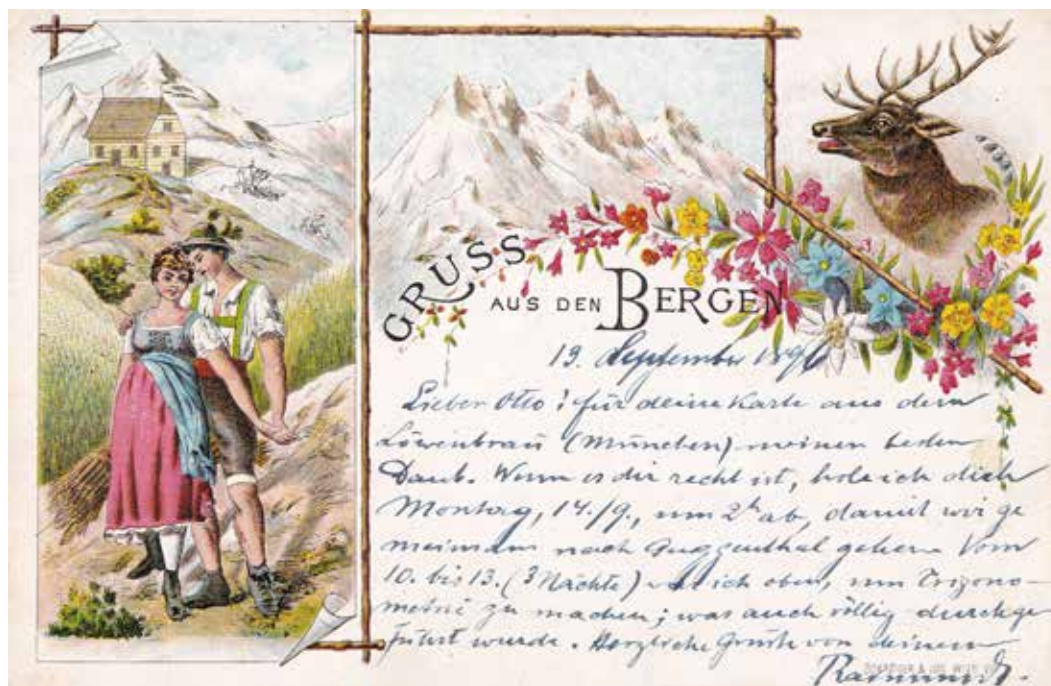 GRUSS AUS DEN BERGEN
13. September 1896
Lieber Otto! für deine Karte aus dem
Löwenbräu (München) meinen besten
Dank. Wenn es dir recht ist, hole ich dich
Montag, 14./9., um 2h ab, damit wir ge
meinsam nach Guggenthal gehen. Vom
10. bis 13. (3 Nächte) war ich oben, um Trigono-
metrie zu machen; was auch völlig durchge
führt wurde. Herzliche Grüße von deinem
Raimund.